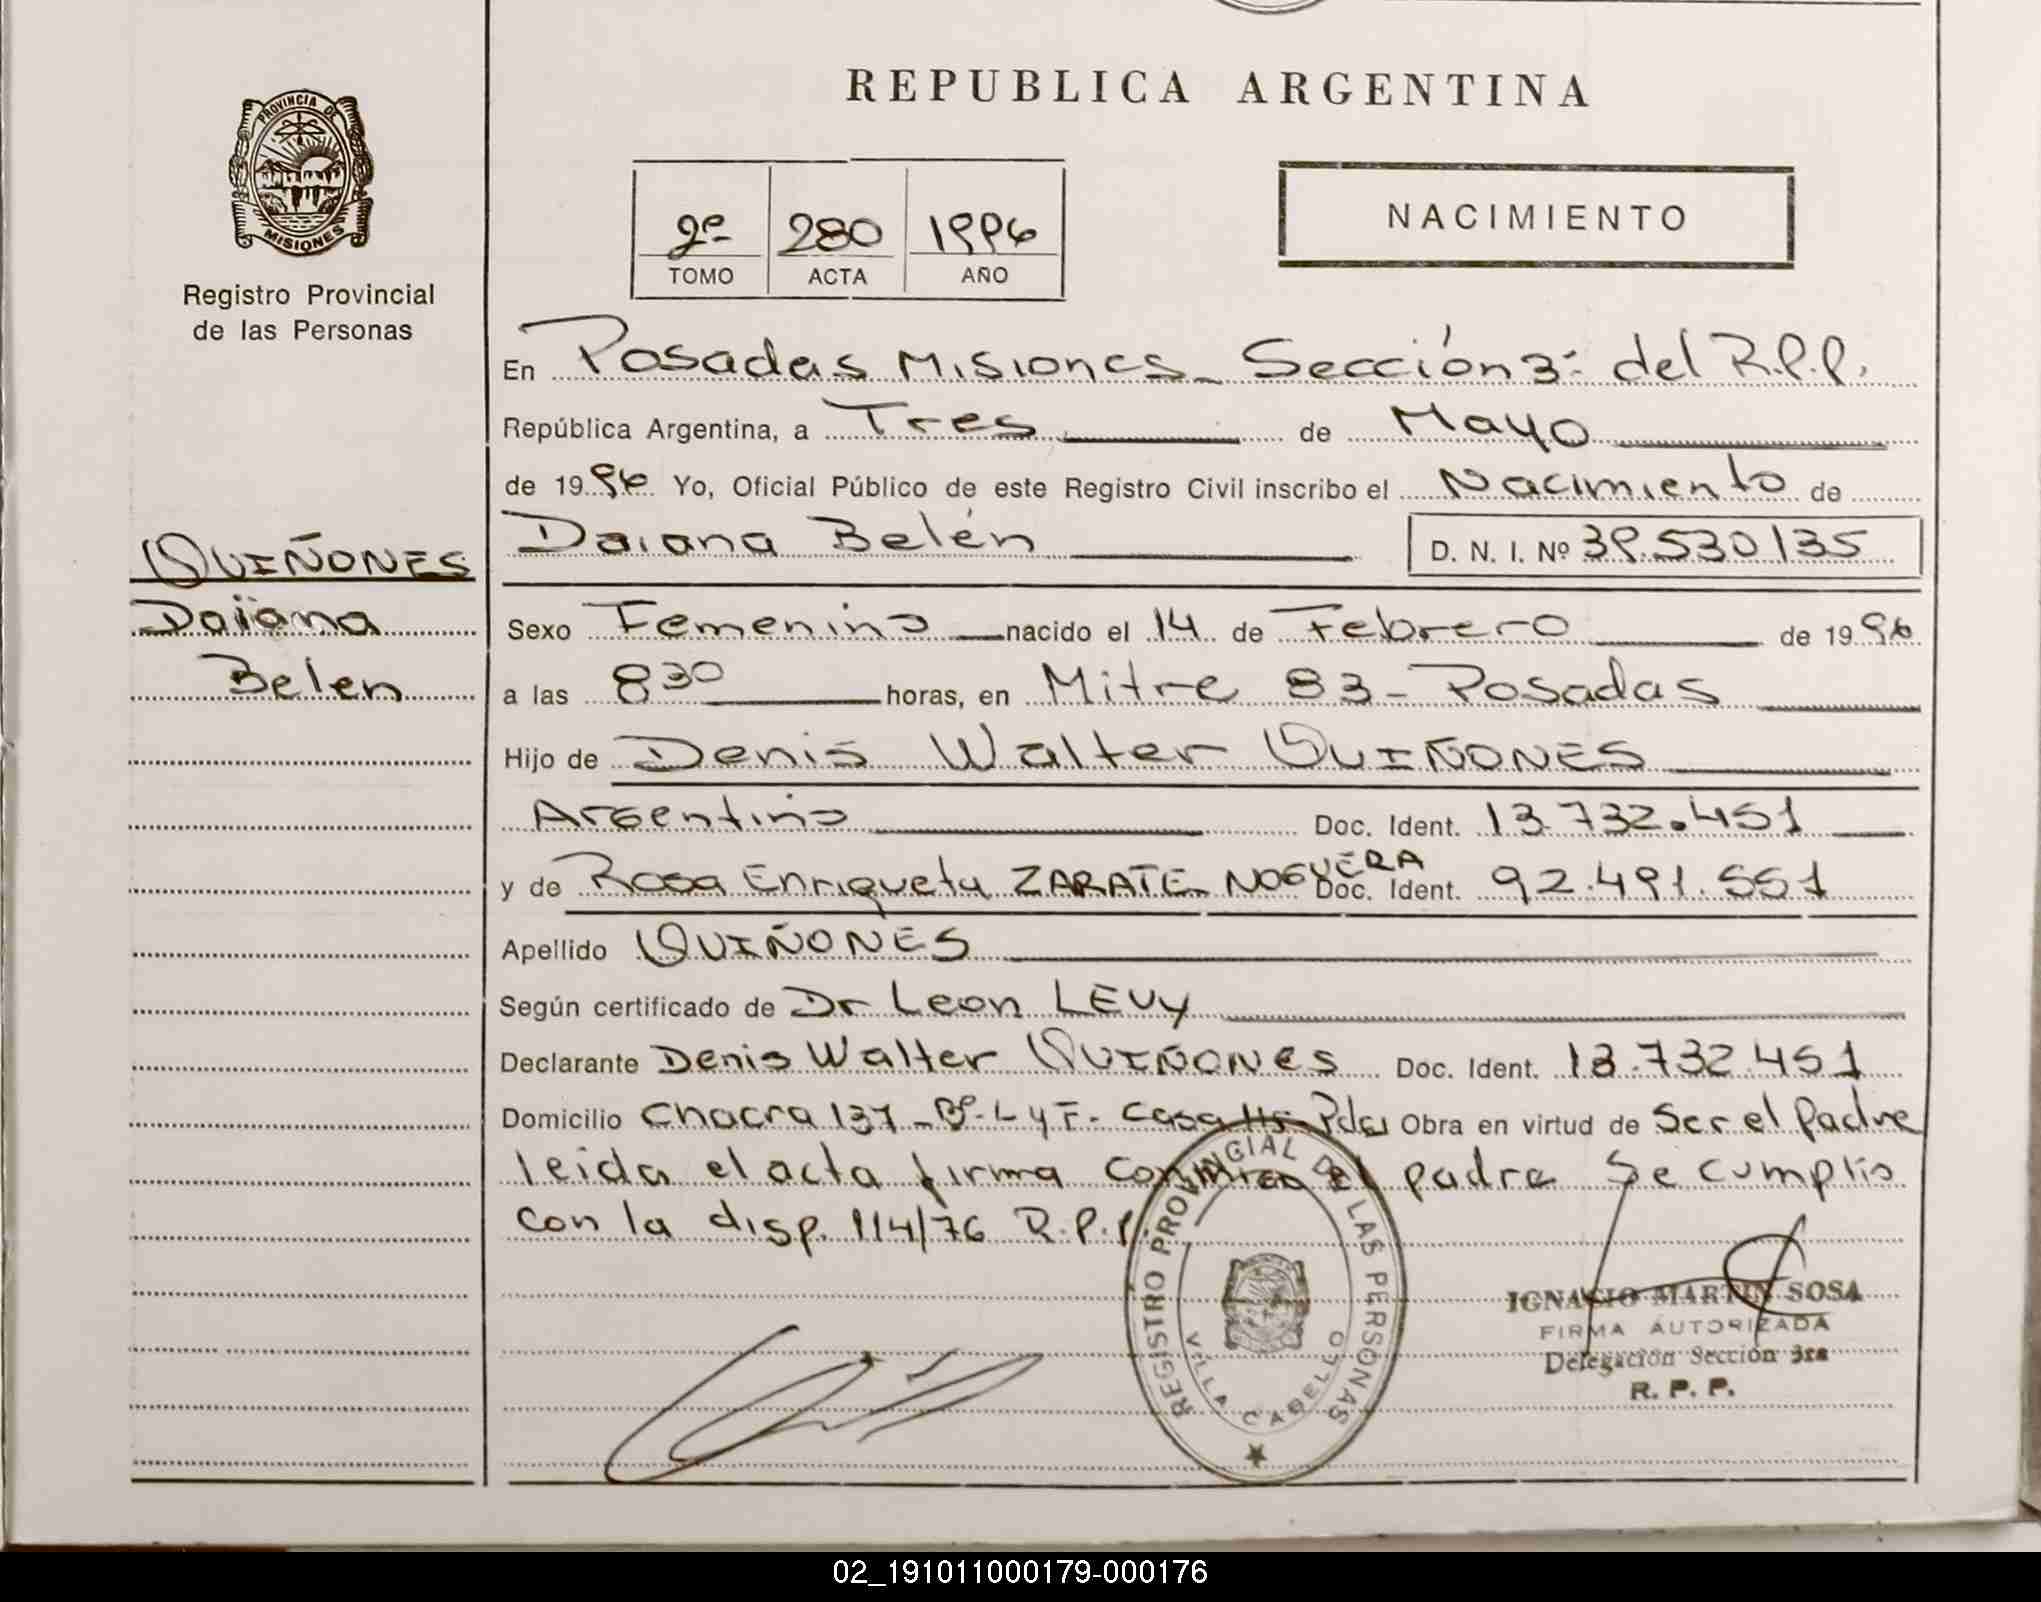 REPUBLICA ARGENTINA
PROVINCIA DE MISIONES
Registro Provincial
de las Personas
2º 280 1996
TOMO ACTA AÑO
NACIMIENTO
En Posadas Misiones - Sección 3ª del R.P.P.
República Argentina, a Tres de Mayo
de 1996 Yo, Oficial Público de este Registro Civil inscribo el Nacimiento de
Daiana Belén D. N. I. Nº 39.530135
QUIÑONES
Daiana
Belen
Sexo Femenino nacido el 14 de Febrero de 1996
a las 8 30 horas, en Mitre 83 - Posadas
Hijo de Denis Walter QUIÑONES
Argentino Doc. Ident. 13.732.451
y de Rosa Enriqueta ZARATE NOGUERA Doc. Ident. 92.491.551
Apellido QUIÑONES
Según certificado de Dr Leon LEVy
Declarante Denis Walter QUIÑONES Doc. Ident. 13.732.451
Domicilio Chacra 137 - Bº - L y F - Casa Pdas Obra en virtud de Ser el Padre
leida el acta firma conmigo el padre Se cumplio
con la disp. 114/76 R.P.P.
REGISTRO PROVINCIAL DE LAS PERSONAS
VILLA CABELLO
IGNACIO MARTIN SOSA
FIRMA AUTORIZADA
Delegación Sección 3ra
R. P. P.
02_191011000179-000176